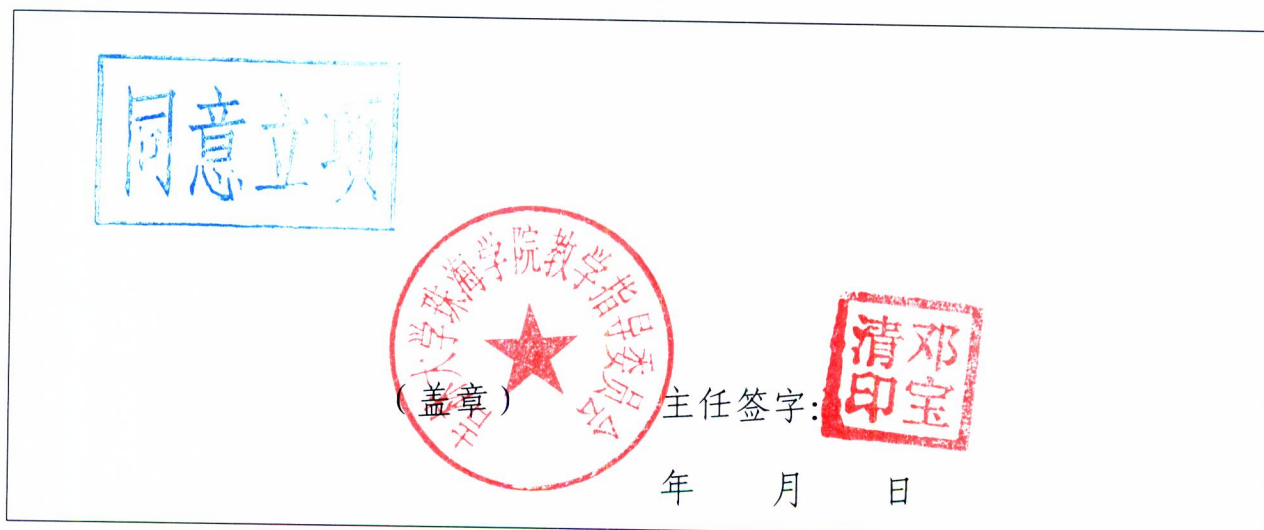 同意立项
吉林大学珠海学院教学指导委员会
(盖章) 主任签字:
邓宝清印
年 月 日